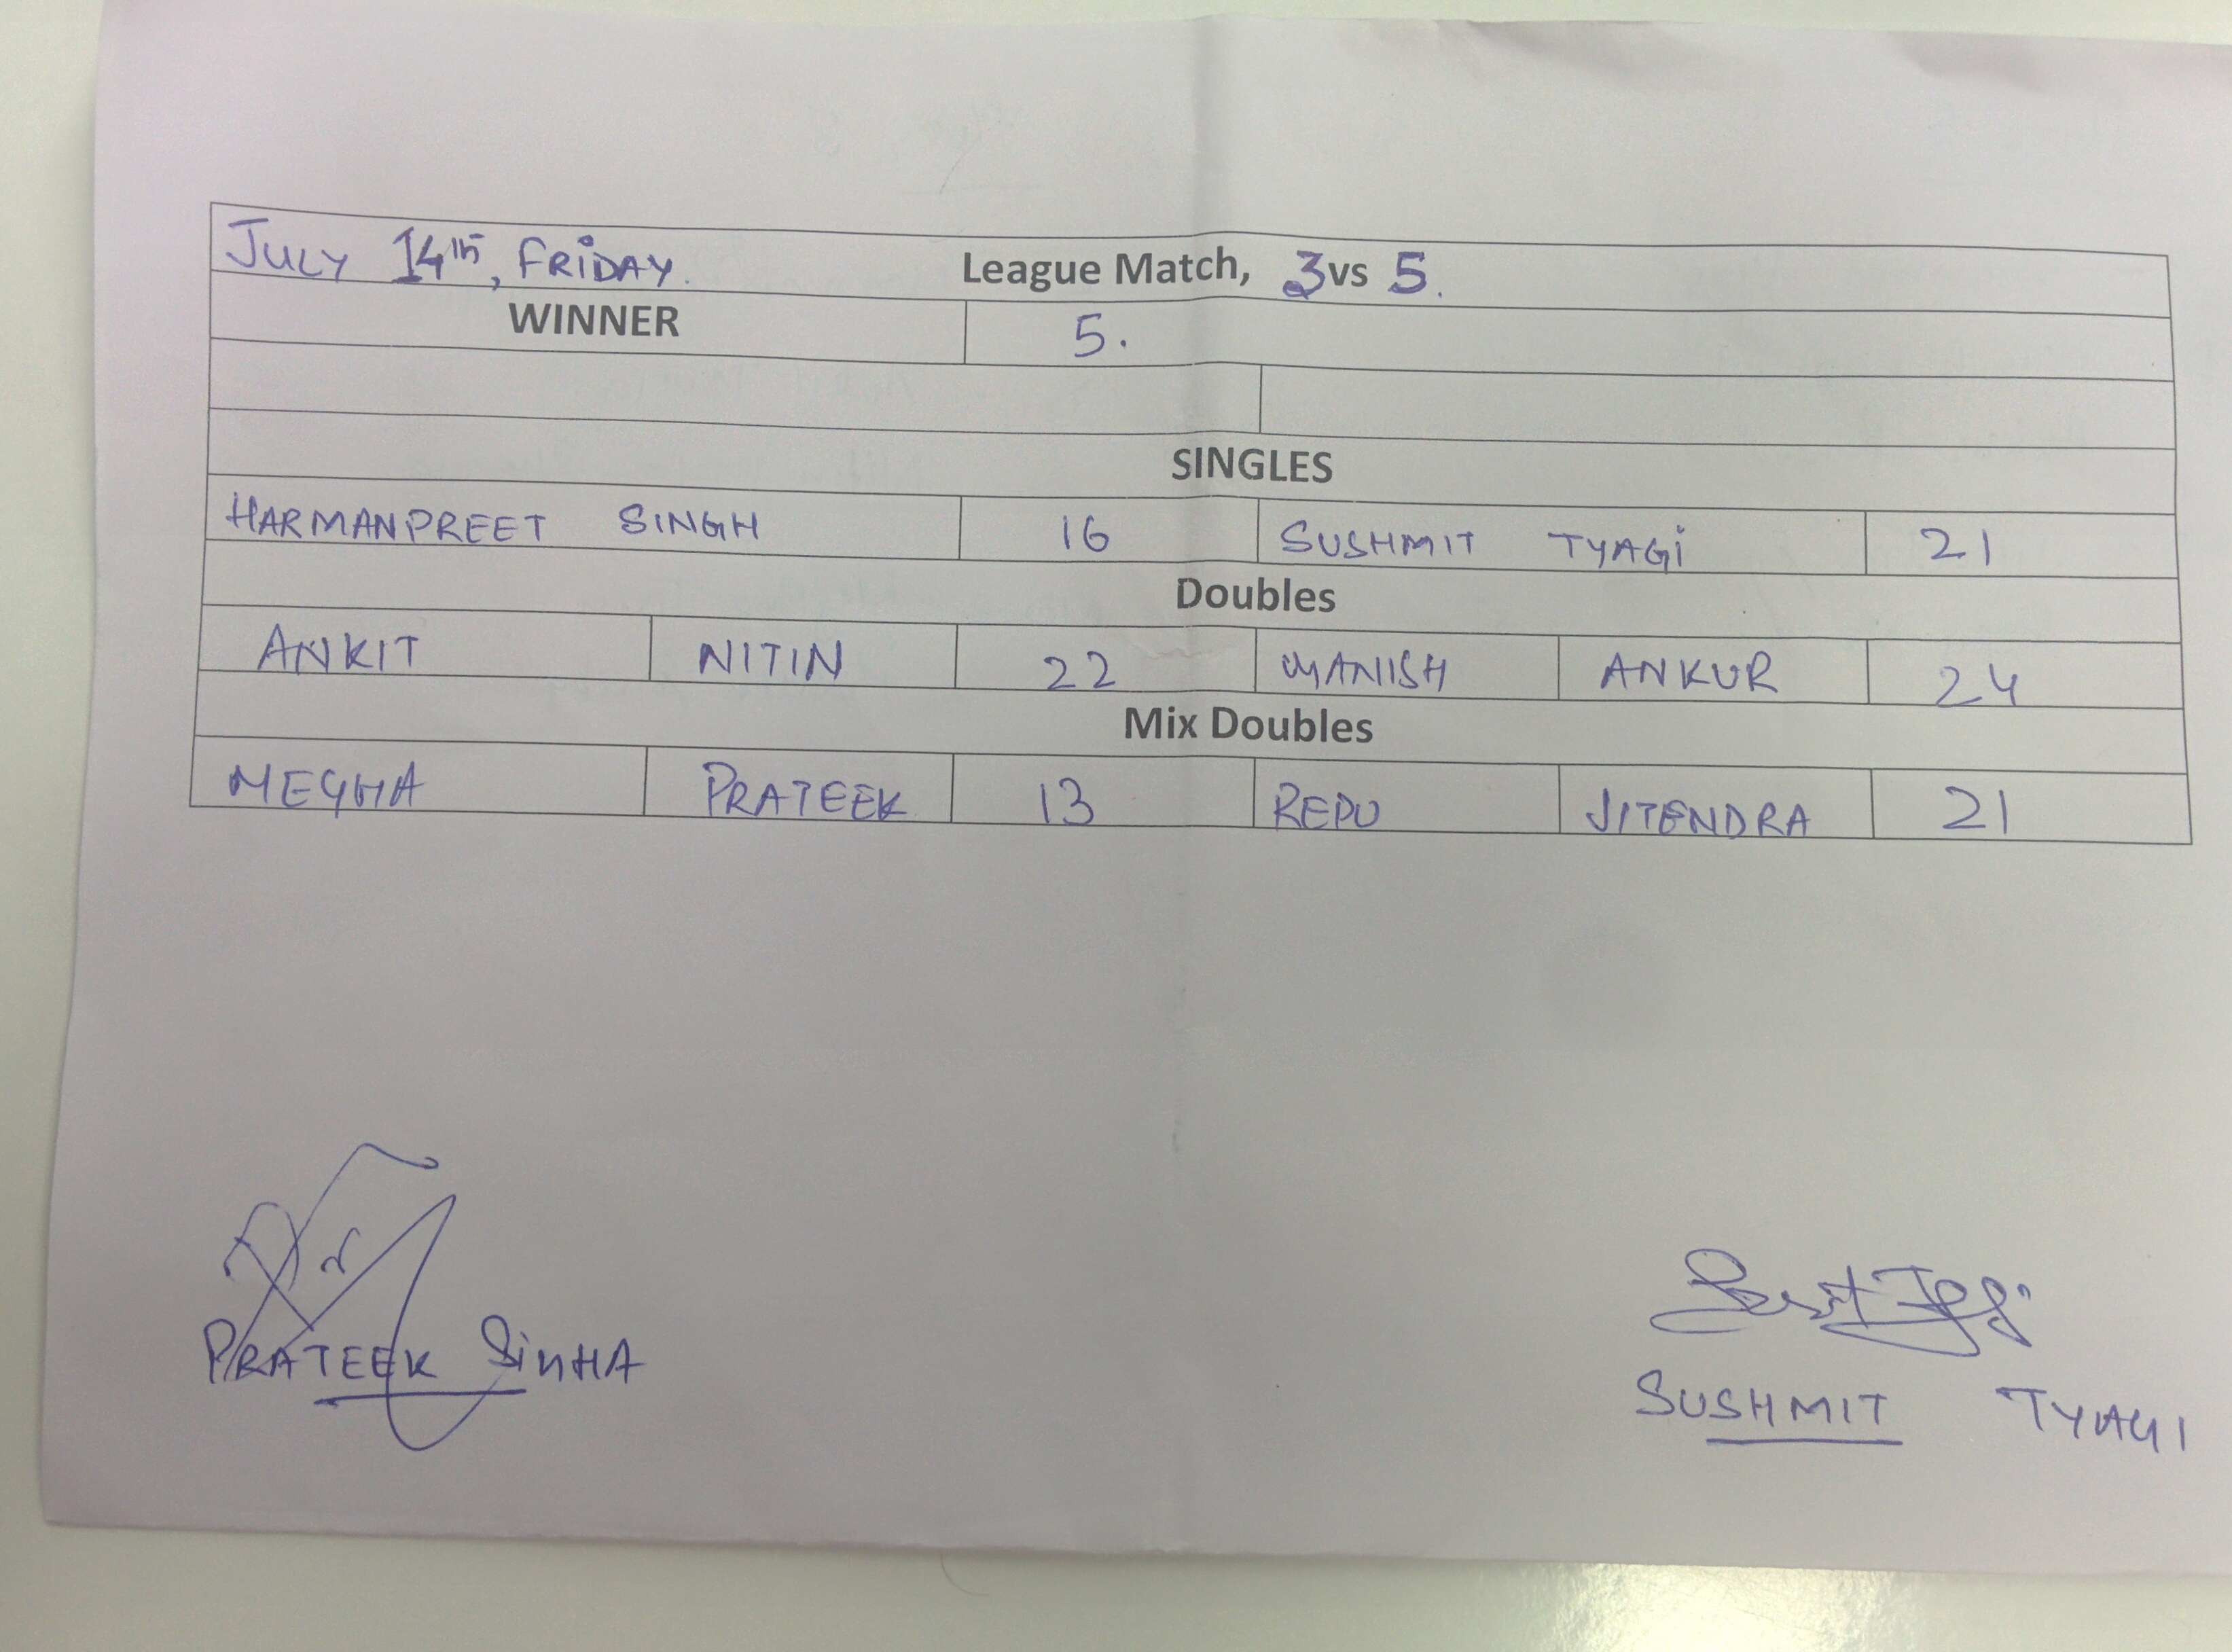 JULY 14th, FRIDAY. League Match, 3 vs 5.
WINNER 5.
SINGLES
HARMANPREET SINGH 16 SUSHMIT TYAGI 21
Doubles
ANKIT NITIN 22 MANISH ANKUR 24
Mix Doubles
MEGHA PRATEEK 13 REPU JITENDRA 21
PRATEEK SINHA
SUSHMIT TYAGI